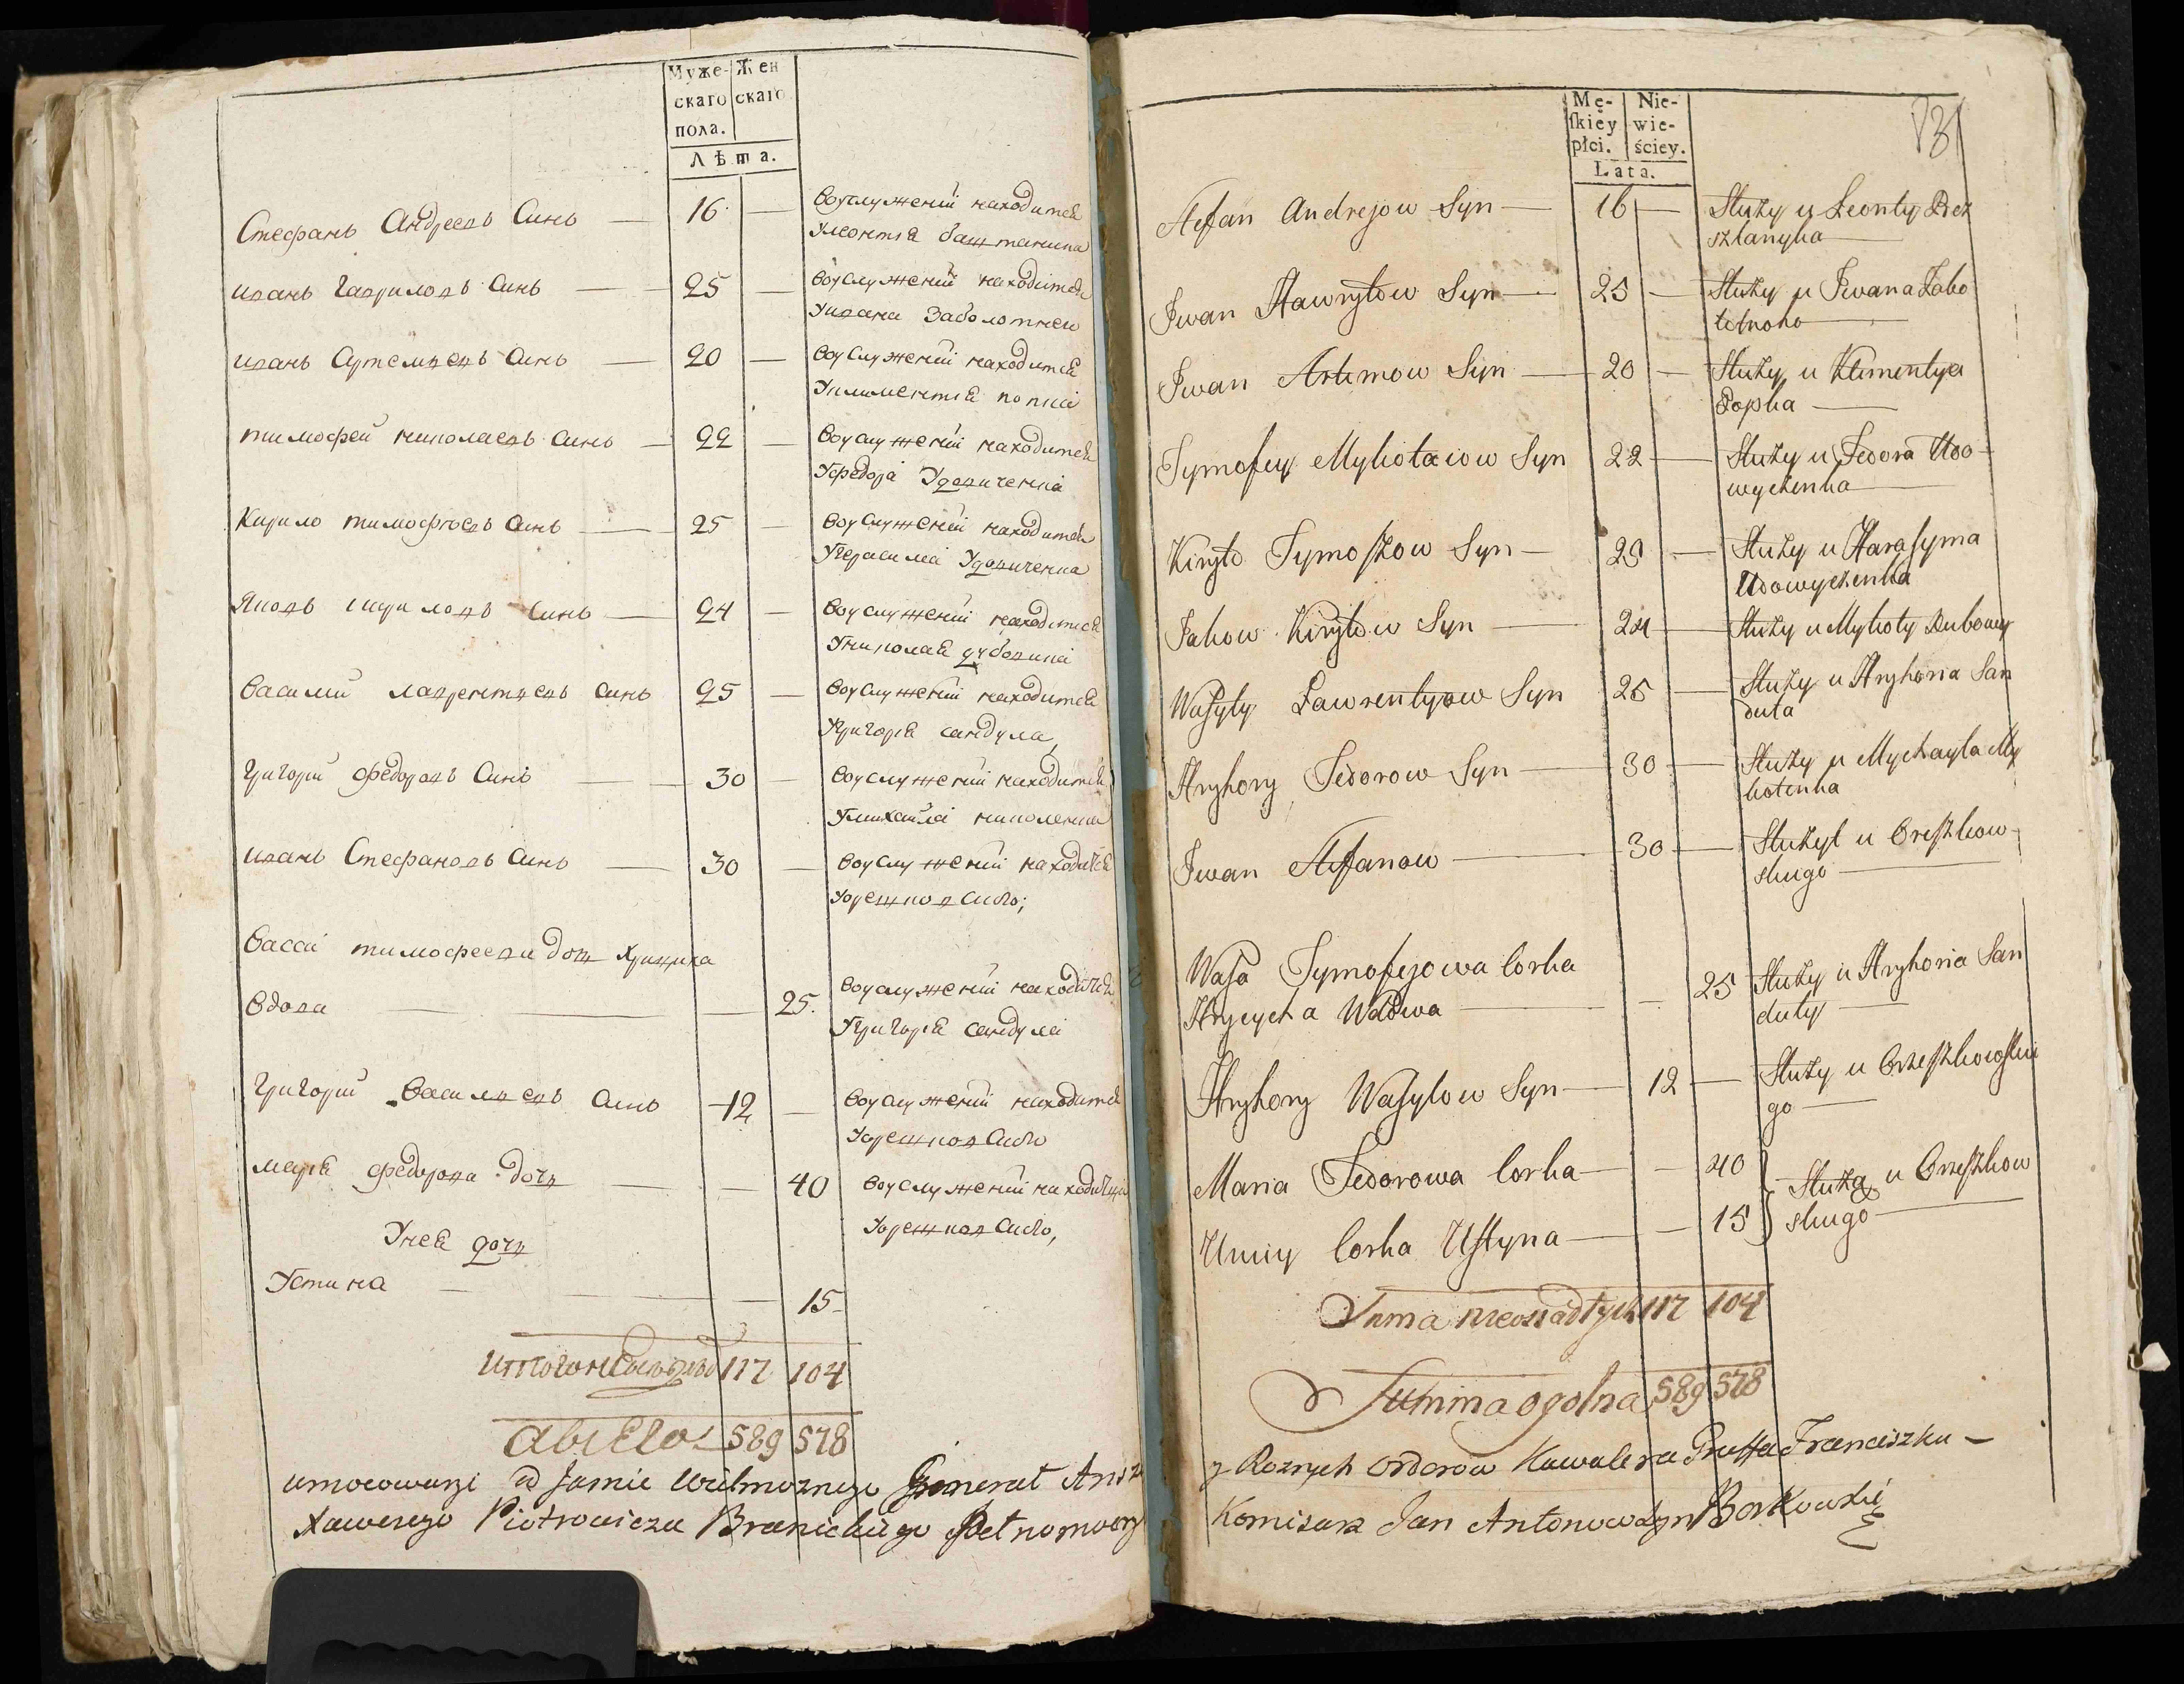 Муже-
скаго
пола.
Жен
скаго
Лѣта.
Стефанъ Андреевъ Синъ — 16 — воуслуженіи находитса
Улеонтія баштаника
иванъ Гавриловъ Синъ — 25 — воуслуженіи находитса
Уивана Заболотнего
иванъ Артемьевъ Синъ — 20 — воуслуженіи находитса
Уклементія попка
тимофей николаевъ Синъ — 22 — воуслуженіи находитса
Уфедора Удовиченка
Кирило тимофеевъ Синъ — 25 — воуслуженіи находитса
Угерасима Удовиченка
Яковъ кириловъ Синъ — 24 — воуслуженіи находитса
Униколая дубовика
Василий лаврентьевъ синъ 25 — воуслуженіи находитса
Угригорія сандула
Григорий федоровъ Синъ — 30 — воуслуженіи находитса
Умихайла николенка
иванъ Стефановъ Синъ — 30 — воуслуженіи находитса
Уорешковского;
Васса тимофеева дощ Хрищиха
Вдова — 25. воуслуженіи находитса
Угригорія сандула
Григорий Васильевъ Синъ — 12 — воуслуженіи находитса
Уорешковского
мария федорова дочь — — 40 воуслуженіи находитца
Уорешковского,
Унея дочь
Устина — — 15
117 104
589 578
umocowany od Jasnie Wielmoznego General Ansz
Xawerego Piotrowicza Branickiego Pełnomocny
Mę-
skiey
płci.
Nie-
wie-
ściey.
Lata.
131
Stefan Andrejow Syn — 16 — Służy u Leonty Bek
sztanyka
Iwan Hawryłow Syn — 25 — Służy u Iwana Zabo
łotnoho
Iwan Artemow Syn — 20 — Służy u Klimentya
Popka
Tymofey Mykołaiow Syn 22 — Służy u Fedora Udo-
wyczenka
Kiryło Tymoszow Syn — 25 — Służy u Harasyma
Udowyczenka
Jakow Kiryłow Syn — 24 — Służy u Mykoły Dubowy
Wasyly Ławrentyiow Syn 25 — Służy u Hryhoria San
duła
Hryhory Fedorow Syn — 30 — Służy u Mychayła My
kołenka
Iwan Stefanow — 30 — Służył u Oreszkow-
skiego
Wasa Tymofejowa Corka
Hrycycha Wdowa — 25 Służy u Hryhoria San
duły
Hryhory Wasylow Syn — 12 — Służy u Orzeszkowskie
go
Maria Fedorowa Corka — — 40 Służą u Orzeszkow
skiego
Uniey Corka Ustyna — — 15
Suma nieosiadłych 117 104
Summa ogolna 589 578
y Roznych Orderow Kawalera Graffa Franciszku —
Komisarz Jan Antonow Syn Borkowski